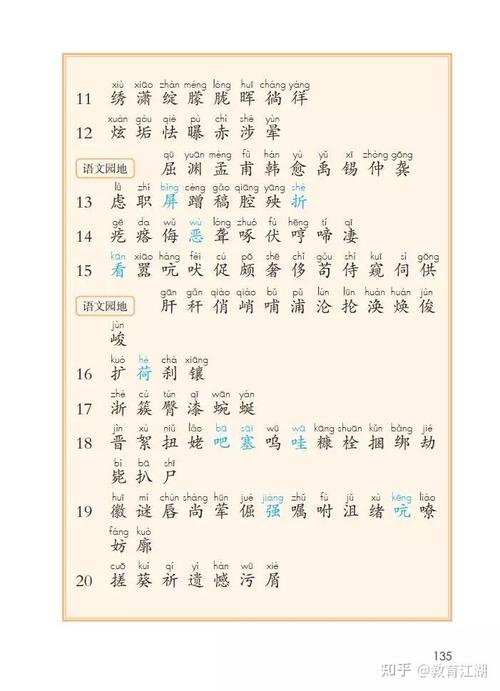 xiù xiāo zhàn méng lóng huī cháng yáng
11 绣 潇 绽 朦 胧 晖 徜 徉
xuàn gòu qiè pù chì shè yùn
12 炫 垢 怯 曝 赤 涉 晕
qū yuān mèng fǔ hán yù yǔ xī zhòng gōng
语文园地 屈 渊 孟 甫 韩 愈 禹 锡 仲 龚
lǜ zhí bǐng cèng gǎo qiāng yāng shé
13 虑 职 屏 蹭 稿 腔 殃 折
gē da wǔ wù lóng zhuó fú hēng tí qī
14 疙 瘩 侮 恶 聋 啄 伏 哼 啼 凄
kān xiāo háng fèi cù pō shē chǐ gǒu shì kuī cì gōng
15 看 嚣 吭 吠 促 颇 奢 侈 苟 侍 窥 伺 供
gān gǎn qiào qiào bǔ pǔ lún lūn huàn huàn jùn
语文园地 肝 秆 俏 峭 哺 浦 沦 抡 涣 焕 俊
jùn
峻
kuò hè chà xiāng
16 扩 荷 刹 镶
zhè cù tún qī wān yán
17 浙 簇 臀 漆 蜿 蜒
jìn xù niǔ lǎo bā sāi wū wā kāng shuān kǔn bǎng jié
18 晋 絮 扭 姥 吧 塞 呜 哇 糠 栓 捆 绑 劫
bì bā shī
毙 扒 尸
huī mí chún shàng hūn jué jiàng zhǔ fù jǔ xù kēng liáo
19 徽 谜 唇 尚 荤 倔 强 嘱 咐 沮 绪 吭 嘹
fáng kuò
妨 廓
cuō kuí qí yí hàn wū xiè
20 搓 葵 祈 遗 憾 污 屑
135
知乎 @教育江湖